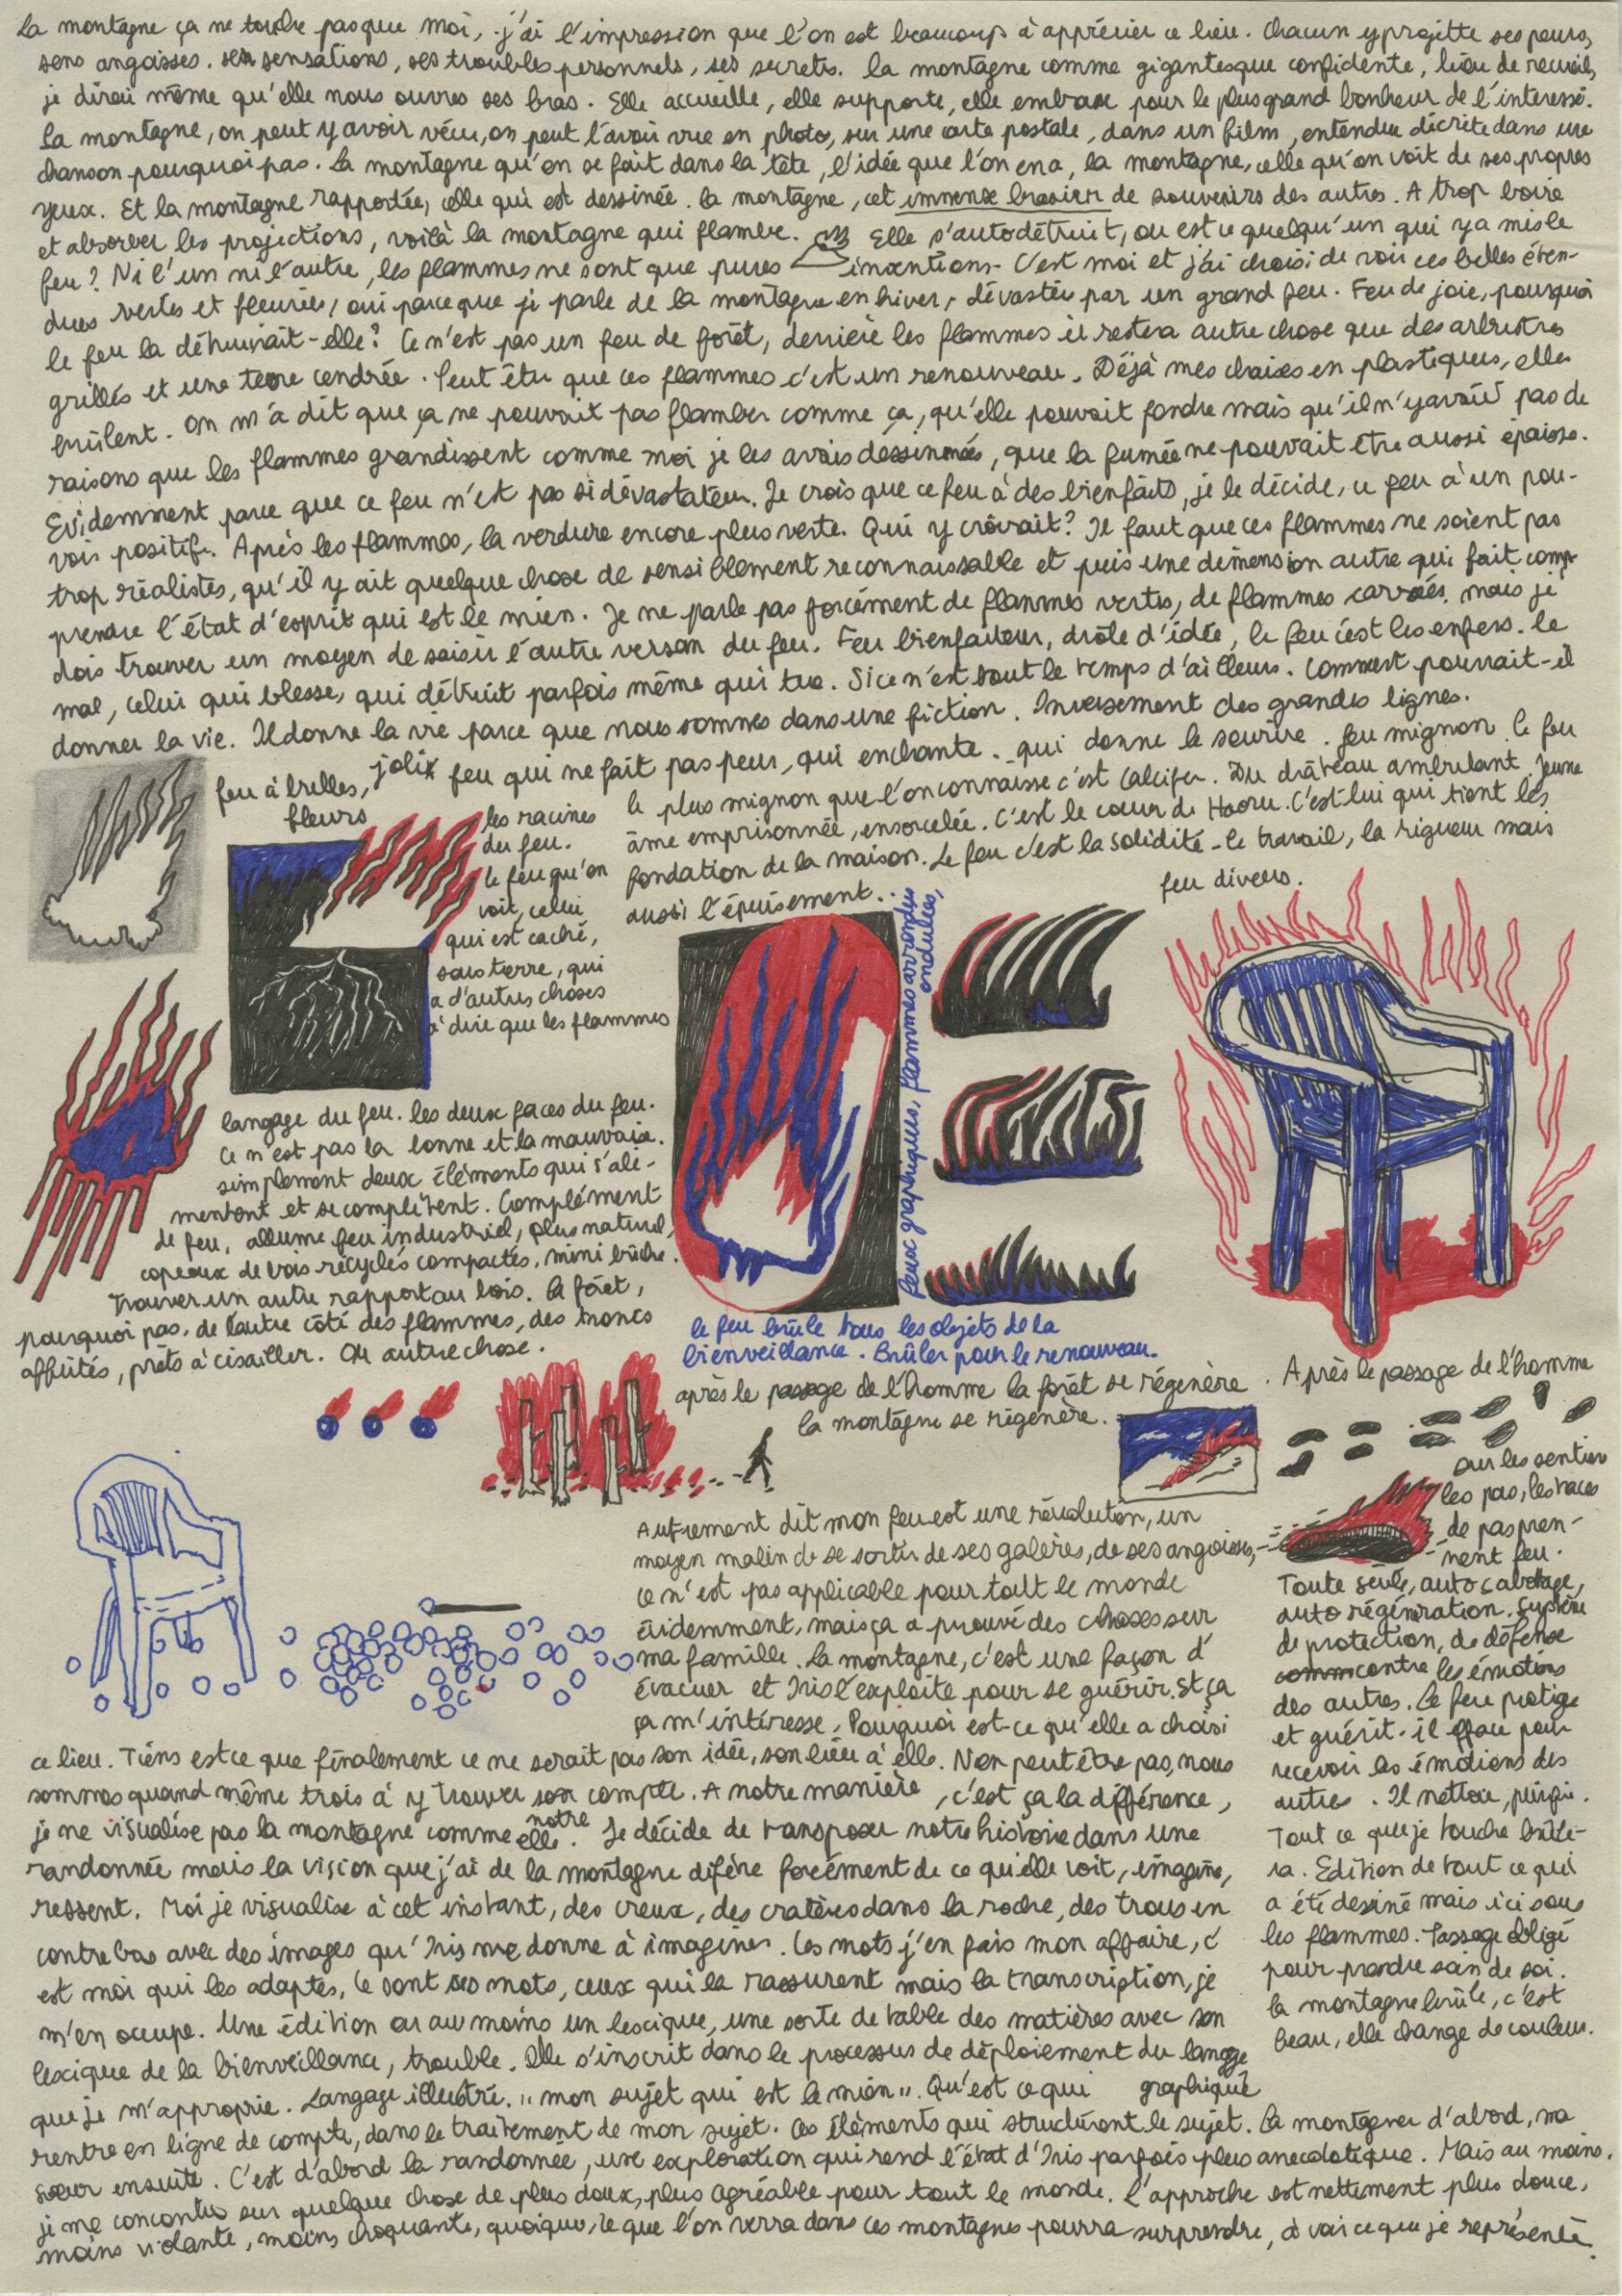 La montagne ça ne touche pas que moi, j'ai l'impression que l'on est beaucoup à apprécier ce lieu. Chacun y projette ses peurs,
sens angoisses. ses sensations, ses troubles personnels, ses secrets. la montagne comme gigantesque confidente, lieu de recueil,
je dirai même qu'elle nous ouvres ses bras. Elle accueille, elle supporte, elle embrase pour le plus grand bonheur de l'interessé.
La montagne, on peut y avoir vécu, on peut l'avoir vue en photo, sur une carte postale, dans un film, entendue décrite dans une
chanson pourquoi pas. La montagne qu'on se fait dans la tête, l'idée que l'on en a, la montagne, celle qu'on voit de ses propres
yeux. Et la montagne rapportée, celle qui est dessinée. la montagne, cet immense brasier de souvenirs des autres. A trop boire
et absorber les projections, voilà la montagne qui flambe. Elle s'autodétruit, ou est ce quelqu'un qui y a mis le
feu? Ni l'un ni l'autre, les flammes ne sont que pures inventions. C'est moi et j'ai choisi de voir ces belles éten-
dues vertes et fleuries, oui parce que je parle de la montagne en hiver, dévastée par un grand feu. Feu de joie, pourquoi
le feu la détruirait-elle? Ce n'est pas un feu de forêt, derrière les flammes il restera autre chose que des arbustres
grillés et une terre cendrée. Peut être que ces flammes c'est un renouveau. Déjà mes chaises en plastiques, elles
brûlent. On m'a dit que ça ne pouvait pas flamber comme ça, qu'elle pouvait fondre mais qu'il n'y avait pas de
raisons que les flammes grandissent comme moi je les avais dessinnées, que la fumée ne pouvait être aussi épaisse.
Evidemment parce que ce feu n'est pas si dévastateur. Je crois que ce feu à des bienfaits, je le décide, ce feu à un pou-
voir positif. Après les flammes, la verdure encore plus verte. Qui y croirait? Il faut que ces flammes ne soient pas
trop réalistes, qu'il y ait quelque chose de sensiblement reconnaissable et puis une dimension autre qui fait comp-
prendre l'état d'esprit qui est le mien. Je ne parle pas forcément de flammes vertes, de flammes carrées. mais je
dois trouver un moyen de saisir l'autre versan du feu. Feu bienfaiteur, drôle d'idée, le feu c'est les enfers. le
mal, celui qui blesse, qui détruit parfois même qui tue. Si ce n'est tout le temps d'ailleurs. Comment pourrait-il
donner la vie. Il donne la vie parce que nous sommes dans une fiction. Inversement des grandes lignes.
feu à brelles, jolix feu qui ne fait pas peur, qui enchante. qui donne le sourire. feu mignon. le feu
fleurs
le plus mignon que l'on connaisse c'est Calcifer. Du château ambulant. Jeune
âme emprisonnée, ensorcelée. C'est le cœur de Haoru. C'est lui qui tient les
fondation de la maison. Le feu c'est la solidité. le travail, la rigueur mais
aussi l'épuisement.
les racines
du feu.
le feu qu'on
voit, celui
qui est caché,
sous terre, qui
a d'autres choses
à dire que les flammes
feu divers.
feux graphiques, flammes arrondies
ondulées,
langage du feu. les deux faces du feu.
Ce n'est pas la bonne et la mauvaise.
simplement deux éléments qui s'ali-
mentent et se complètent. Complément
de feu, allume feu industriel, plus naturel,
copeaux de bois recyclés compactés, mini bûche.
Trouver un autre rapport au bois. la forêt,
pourquoi pas, de l'autre côté des flammes, des troncs
affûtés, prêts à cisailler. Ou autre chose.
le feu brûle tous les objets de la
bienveillance. Brûler pour le renouveau.
après le passage de l'homme la forêt se régénère.
la montagne se régénère.
Après le passage de l'homme
sur les sentier
les pas, les traces
de pas pren-
nent feu.
Toute seule, auto sabotage,
auto régénération. Système
de protection, de défense
contre les émotions
des autres. Le feu protège
et guérit. il efface pour
recevoir les émotions des
autres. Il nettoie, purifie.
Tout ce que je touche brûle-
ra. Edition de tout ce qui
a été dessiné mais ici sous
les flammes. Passage obligé
pour prendre soin de soi.
la montagne brûle, c'est
beau, elle change de couleur.
Autrement dit mon feu est une révolution, un
moyen malin de se sortir de ses galères, de ses angoisses,
ce n'est pas applicable pour tout le monde
évidemment, mais ça a prouvé des choses sur
ma famille. La montagne, c'est une façon d'
évacuer et Iris l'exploite pour se guérir. Et ça
ça m'intéresse. Pourquoi est-ce qu'elle a choisi
ce lieu. Tiens est ce que finalement ce ne serait pas son idée, son lieu à elle. Non peut être pas, nous
sommes quand même trois à y trouver son compte. A notre manière, c'est ça la différence,
notre
je ne visualise pas la montagne comme elle. Je décide de transposer notre histoire dans une
randonnée mais la vision que j'ai de la montagne difère forcément de ce qu'elle voit, imagine,
ressent. Moi je visualise à cet instant, des creux, des cratères dans la roche, des trous en
contre bas avec des images qu'Iris me donne à imaginer. Ces mots j'en fais mon affaire, c'
est moi qui les adaptes. Ce sont ses mots, ceux qui la rassurent mais la transcription, je
m'en occupe. Une édition ou au moins un lescique, une sorte de table des matières avec son
lescique de la bienveillance, trouble. Elle s'inscrit dans le processus de déploiement du langage
graphique
que je m'approprie. Langage illustré. "mon sujet qui est le mien". Qu'est ce qui
rentre en ligne de compte, dans le traitement de mon sujet. Ces éléments qui structurent le sujet. La montagne d'abord, ma
sœur ensuite. C'est d'abord la randonnée, une exploration qui rend l'état d'Iris parfois plus anecdotique. Mais au moins.
je me concentre sur quelque chose de plus doux, plus agréable pour tout le monde. L'approche est nettement plus douce,
moins violante, moins choquante, quoique, ce que l'on verra dans ces montagnes pourra surprendre, à voir ce que je représente.